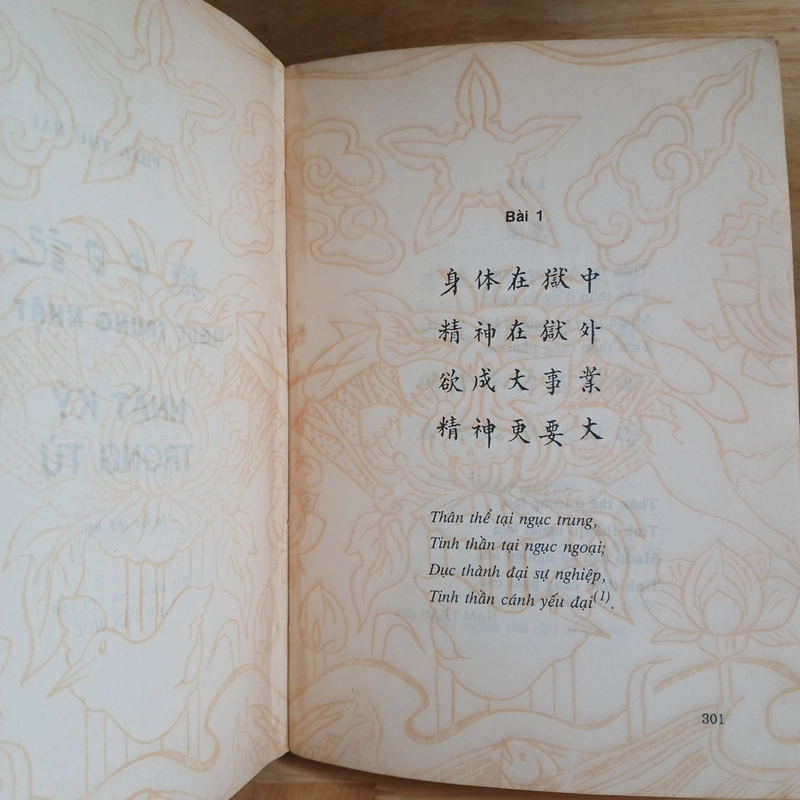 Bài 1
身体在獄中
精神在獄外
欲成大事業
精神更要大
Thân thể tại ngục trung,
Tinh thần tại ngục ngoại;
Dục thành đại sự nghiệp,
Tinh thần cánh yếu đại(1).
301